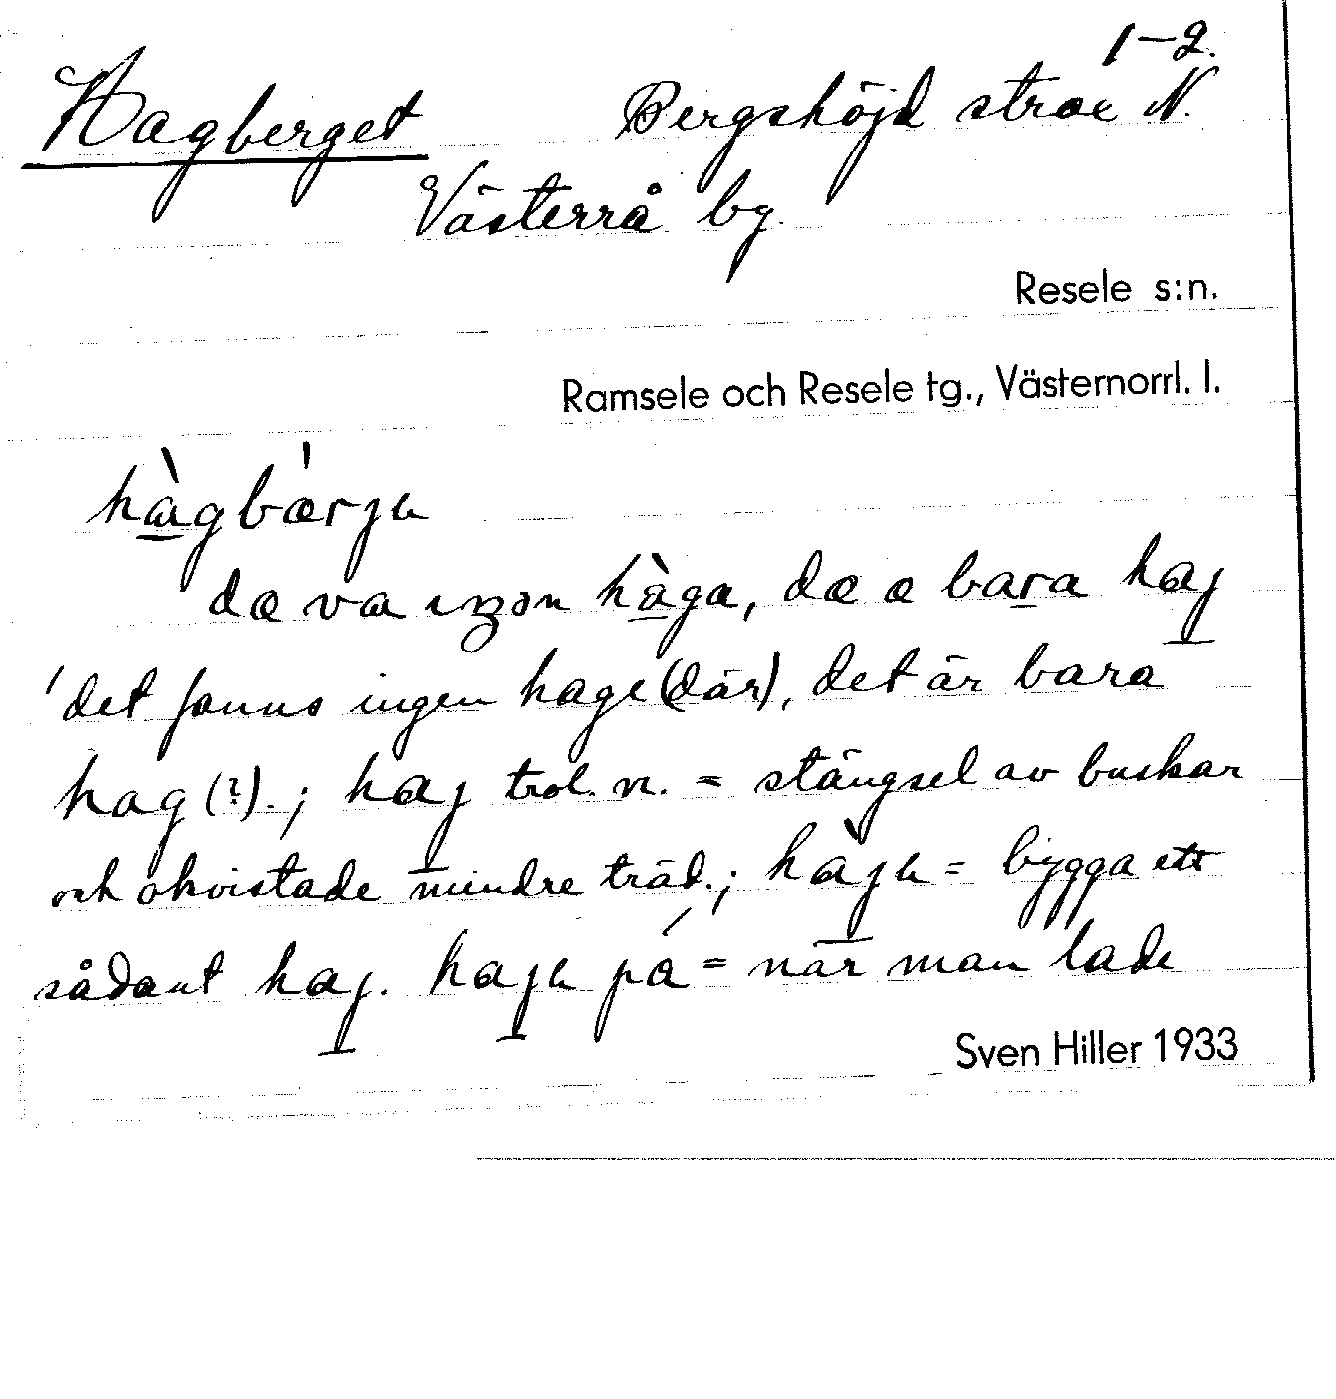 1–2.
Hagberget Bergshöjd strax N.
Västerrå by.
Resele s:n.
Ramsele och Resele tg., Västernorrl. l.
hàgbǽrjɩ
dæ va ɩŋən hàga, dæ æ bara haj
'det fanns ingen hage (där), det är bara
hag (?).; haj trol. n. = stängsel av buskar
och okvistade mindre träd.; hàjɩ = bygga ett
sådant haj. hajɩ pá = när man lade
Sven Hiller 1933